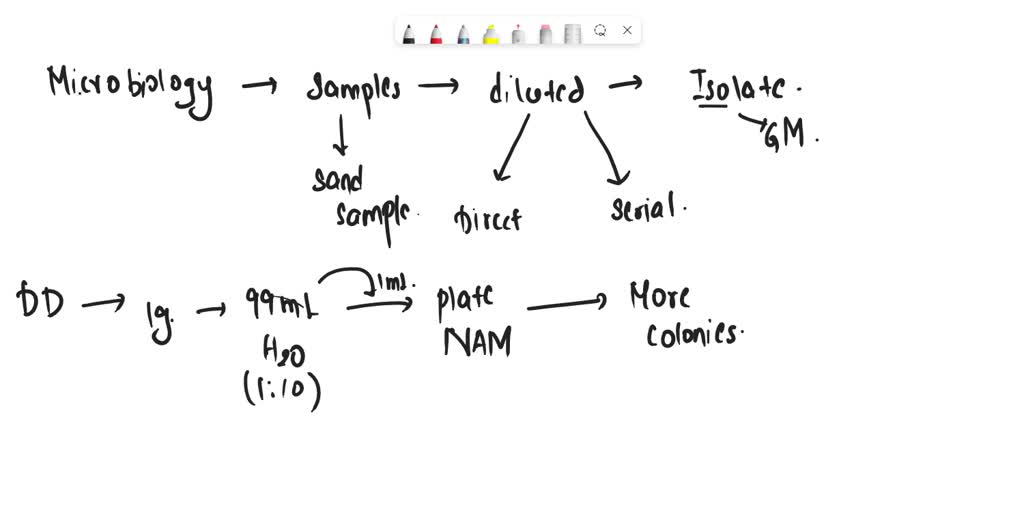 Microbiology → Samples → diluted → Isolate.
GM.
Sand
Sample.
Direct
Serial.
DD → 1g. → 99mL → plate → More
1ml.
H2O
NAM
colonies.
(1:10)